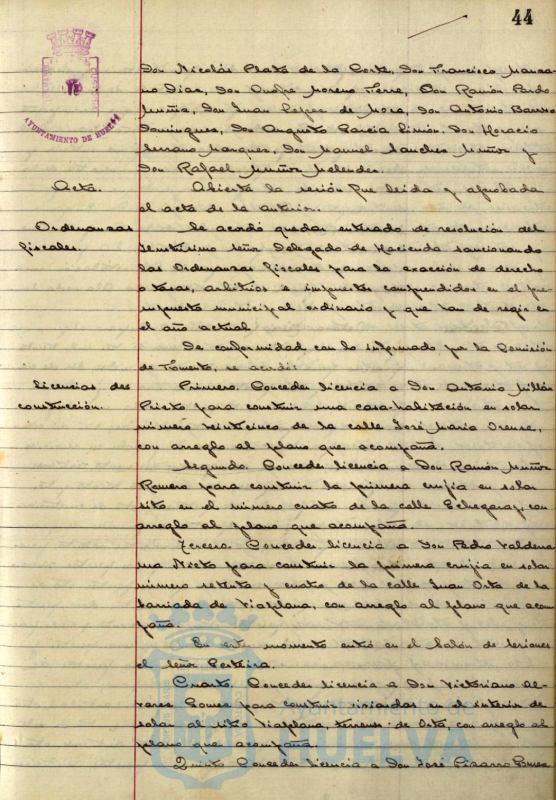 44
AYUNTAMIENTO DE HUELVA
Don Nicolás Plata de la Corte, Don Francisco Manza-
no Díaz, Don Onofre Moreno Terre, Don Ramón Pardo
Muñiz, Don Juan López de Mora, Don Antonio Barra
Domínguez, Don Augusto García Limón, Don Horacio
Serrano Marquez, Don Manuel Sanchez Muñoz y
Don Rafael Muñoz Melendez.
Acta. Abierta la sesión fue leida y aprobada
el acta de la anterior.
Ordenanzas Se acordó quedar enterado de resolución del
fiscales. Ilustrísimo señor Delegado de Hacienda sancionando
las Ordenanzas fiscales para la exacción de derechos
o tasas, arbitrios e impuestos comprendidos en el pre-
supuesto municipal ordinario y que han de regir en
el año actual
De conformidad con lo informado por la Comisión
de Fomento, se acordó:
Licencias de Primero. Conceder licencia a Don Antonio Millán
construcción. Prieto para construir una casa-habitación en solar
número veinticinco de la calle José María Orense,
con arreglo al plano que acompaña.
Segundo. Conceder licencia a Don Ramón Muñoz
Romero para construir la primera crujía en solar
sito en el número cuatro de la calle Echegaray, con
arreglo al plano que acompaña.
Tercero. Conceder licencia a Don Pedro Valderra
ma Nieto para construir la primera crujía en solar
número setenta y cuatro de la calle Juan Orta de la
barriada de Viaplana, con arreglo al plano que acom-
paña.
En este momento entró en el Salón de sesiones
el señor Terteira.
Cuarto. Conceder licencia a Don Victoriano Al-
varez Gomez para construir viviendas en el interior de
solar al sitio Viaplana, terrenos de Orta, con arreglo al
plano que acompaña.
Quinto Conceder licencia a Don José Pizarro
Ayuntamiento de
HUELVA